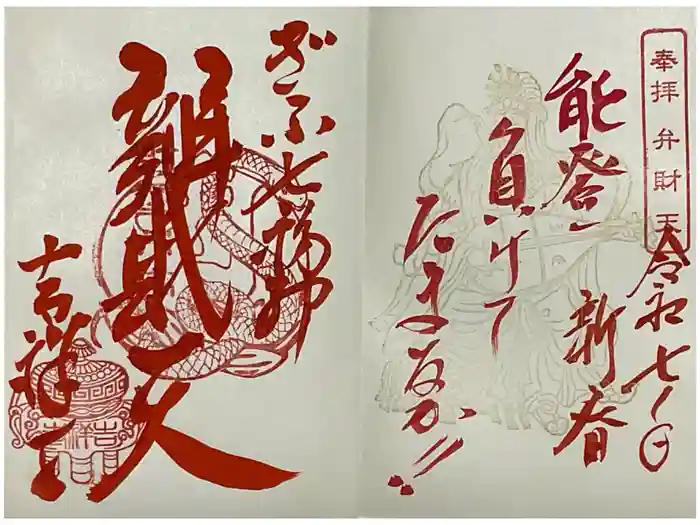 奉拝 弁財天
令和七、一、一日
新春
能登
負けて
たまるか!!
ぎふ七福神
辨財天
吉祥寺
吉祥